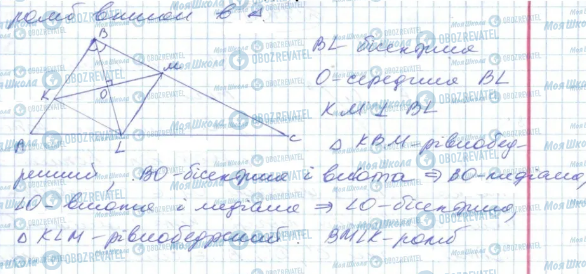 ромб вписан в △
B
K
O
M
A
L
C
BL бісектриса
O-середина BL
KM ⊥ BL
△ KBM-рівнобед-
рений, BO-бісектриса і висота ⇒ BO-медіана,
LO-висота і медіана ⇒ LO-бісектриса,
△ KLM-рівнобедрений. BMLK-ромб